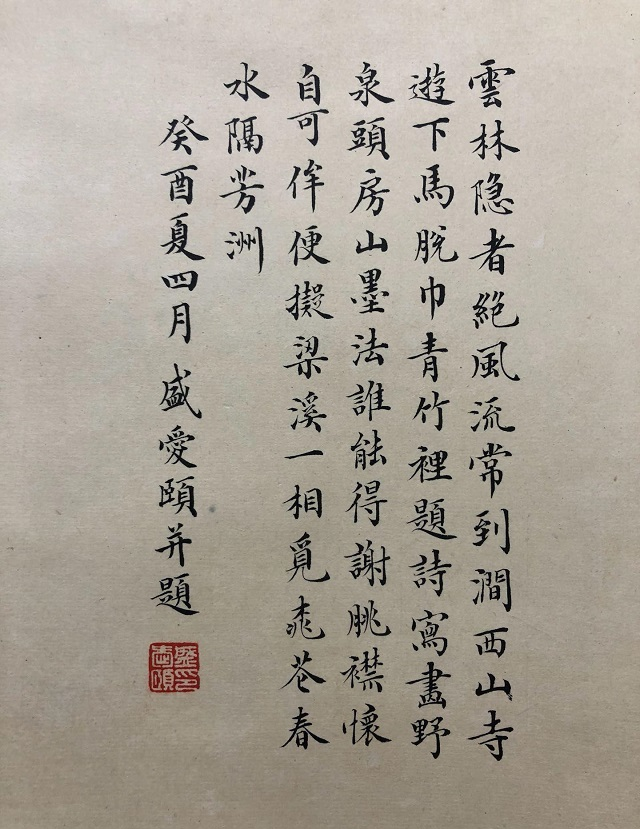 雲林隐者絕風流常到澗西山寺
遊下馬脫巾青竹裡題詩寫畫野
泉頭房山墨法誰能得謝脁襟懷
自可侔便擬梁溪一相覓桃花春
水隔芳洲
癸酉夏四月盛愛頤并題
盛愛頤印